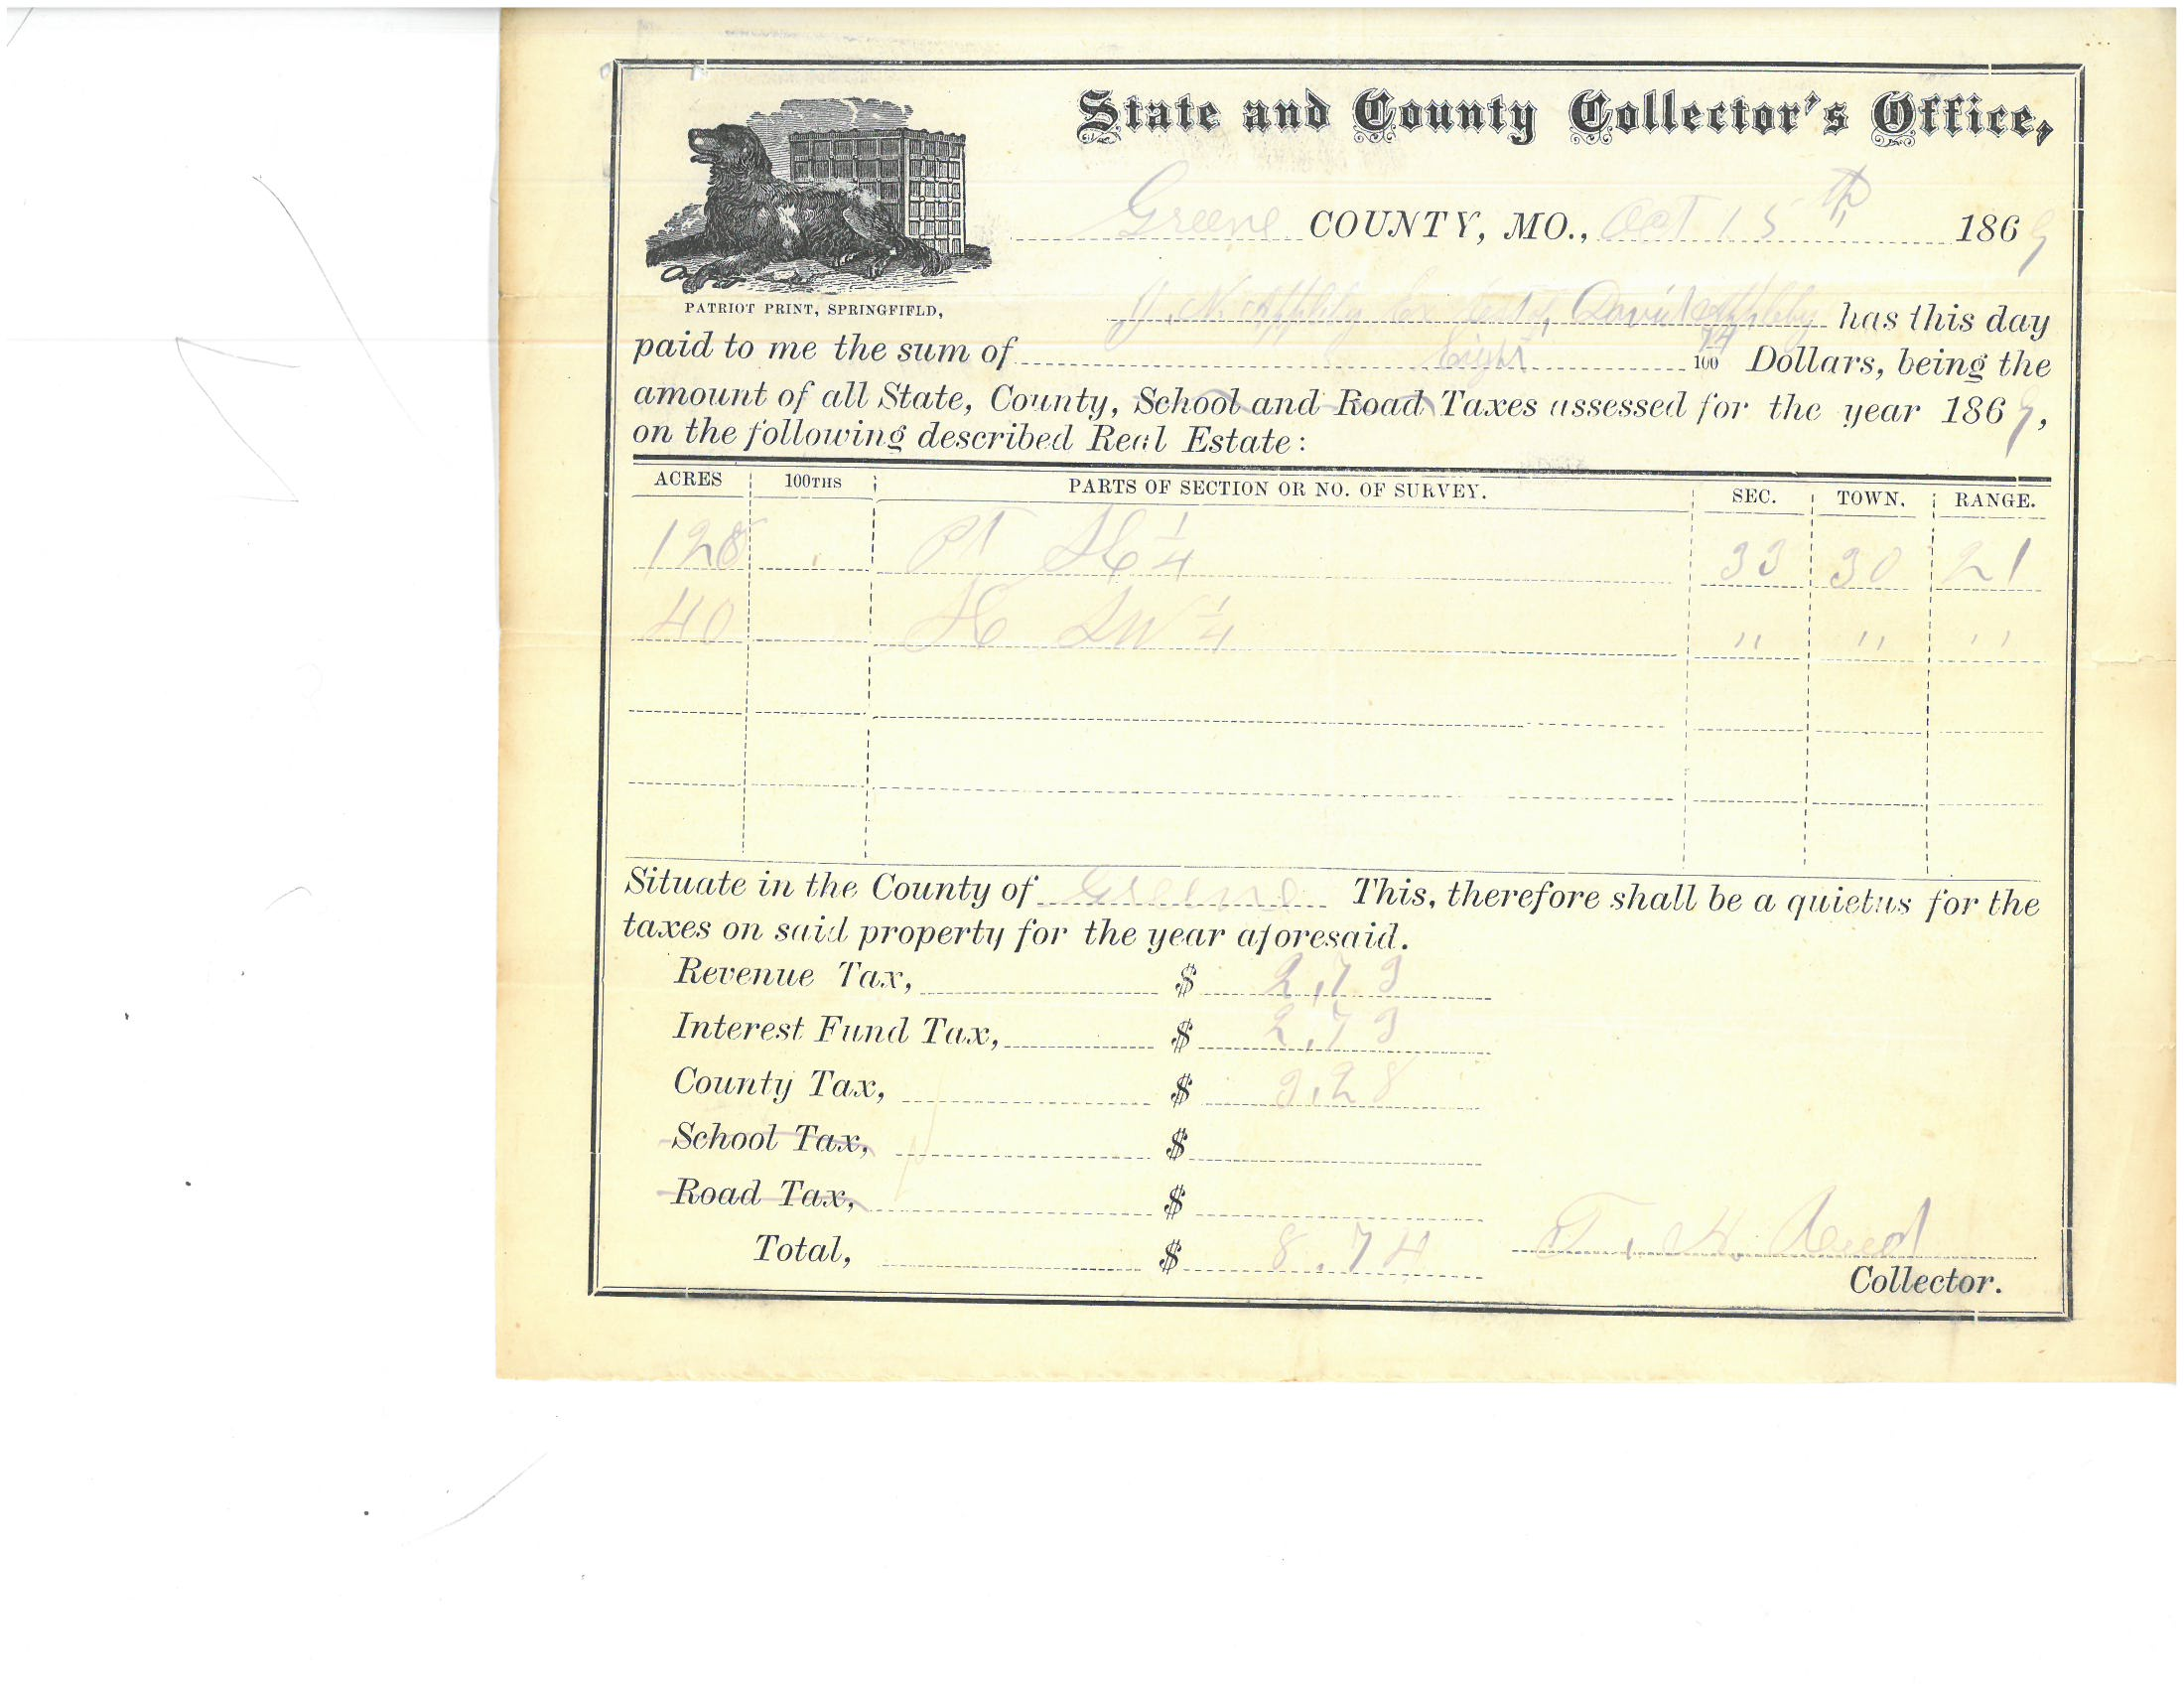 State and County Collector's Office,
Greene COUNTY, MO., Oct 15th 1869
PATRIOT PRINT, SPRINGFIELD,
J. N. Appleby Ex Est of David Appleby has this day
paid to me the sum of Eight 74/100 Dollars, being the
amount of all State, County, School and Road Taxes assessed for the year 1869,
on the following described Real Estate:
ACRES 100THS PARTS OF SECTION OR NO. OF SURVEY. SEC. TOWN. RANGE.
128 Pt SE 1/4 33 30 21
40 SE SW 1/4 " " "
Situate in the County of Greene This, therefore shall be a quietus for the
taxes on said property for the year aforesaid.
Revenue Tax, $ 2,73
Interest Fund Tax, $ 2,73
County Tax, $ 3,28
School Tax, $
Road Tax, $
Total, $ 8.74 T. H. Reed
Collector.